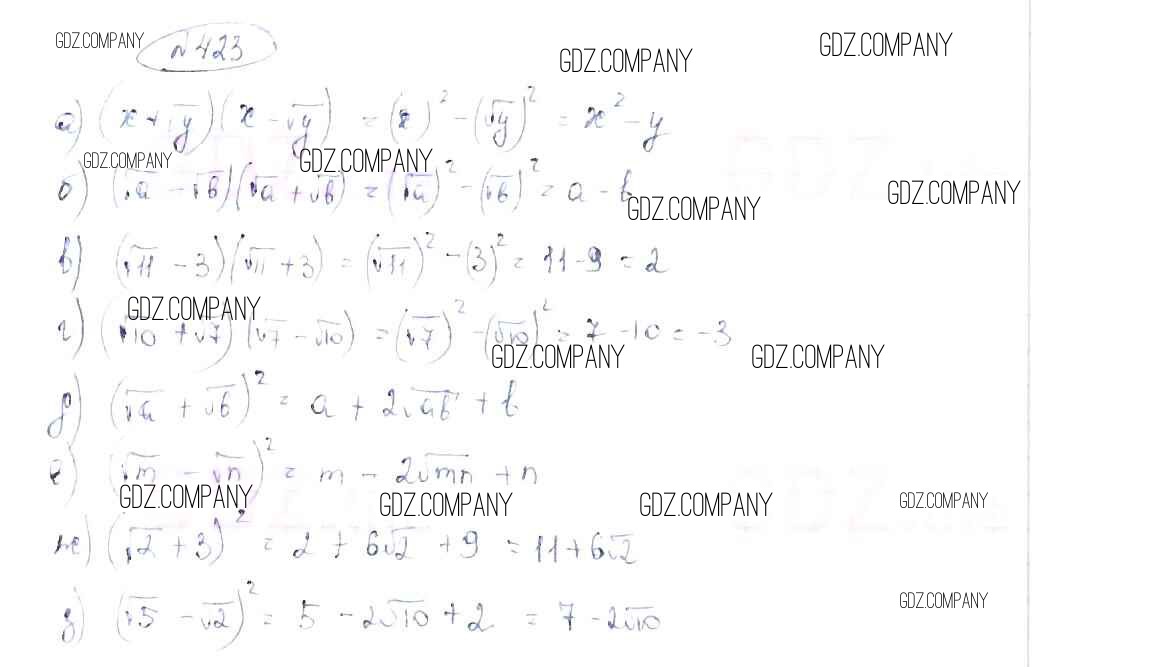 GDZ.COMPANY № 423 GDZ.COMPANY GDZ.COMPANY
а) (x + √y)(x - √y) = (x)² - (√y)² = x² - y
GDZ.COMPANY GDZ.COMPANY
б) (√a - √b)(√a + √b) = (√a)² - (√b)² = a - b
GDZ.COMPANY GDZ.COMPANY
в) (√11 - 3)(√11 + 3) = (√11)² - (3)² = 11 - 9 = 2
GDZ.COMPANY
г) (√10 + √7)(√7 - √10) = (√7)² - (√10)² = 7 - 10 = -3
GDZ.COMPANY GDZ.COMPANY
д) (√a + √b)² = a + 2√ab + b
е) (√m - √n)² = m - 2√mn + n
GDZ.COMPANY GDZ.COMPANY GDZ.COMPANY GDZ.COMPANY
ж) (√2 + 3)² = 2 + 6√2 + 9 = 11 + 6√2
GDZ.COMPANY
з) (√5 - √2)² = 5 - 2√10 + 2 = 7 - 2√10